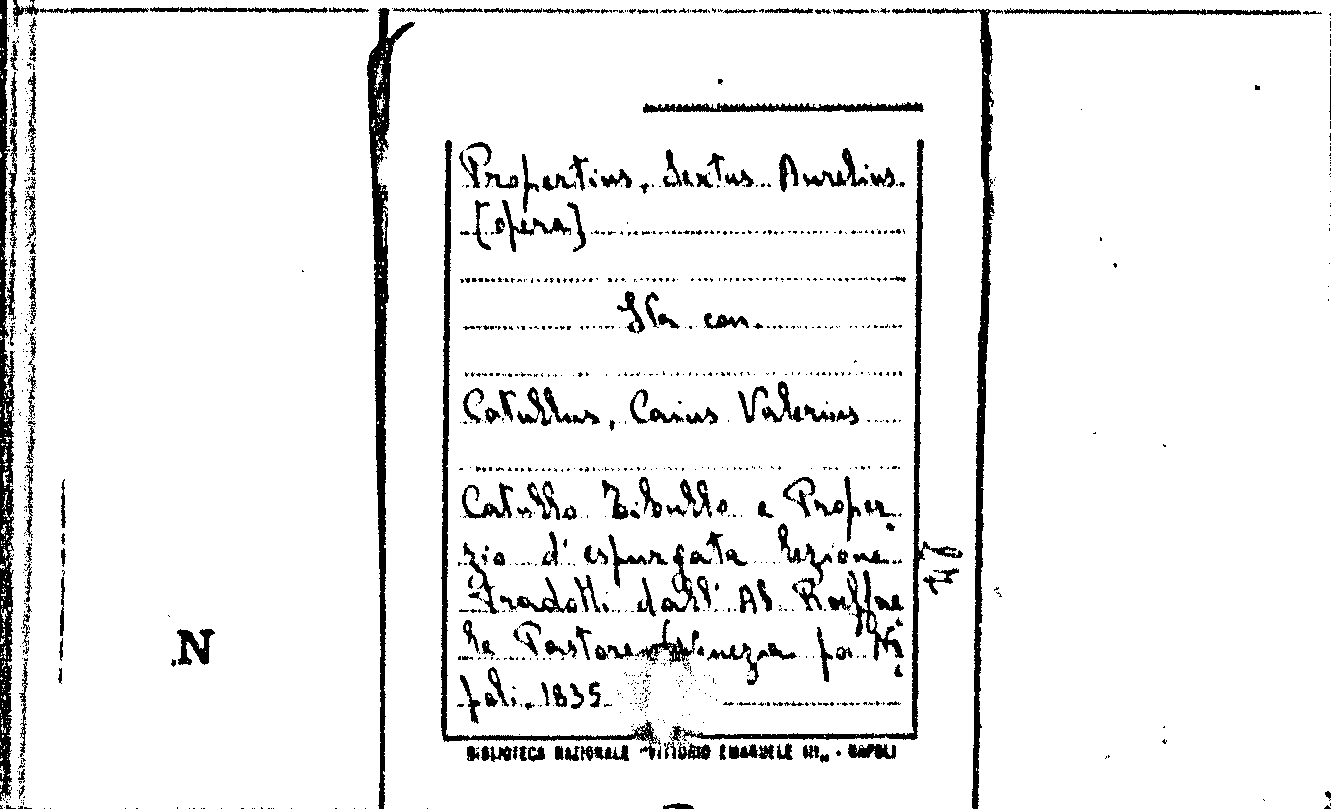 Propertius, Sextus Aurelius.
[opera]
Sta con.
Catullus, Caius Valerius
Catullo Tibullo e Proper-
zio d'espurgata lezione
tradotti dall' Ab Raffae
le Pastore Venezia poi Na
poli. 1835
BIBLIOTECA NAZIONALE "VITTORIO EMANUELE III" - NAPOLI
N